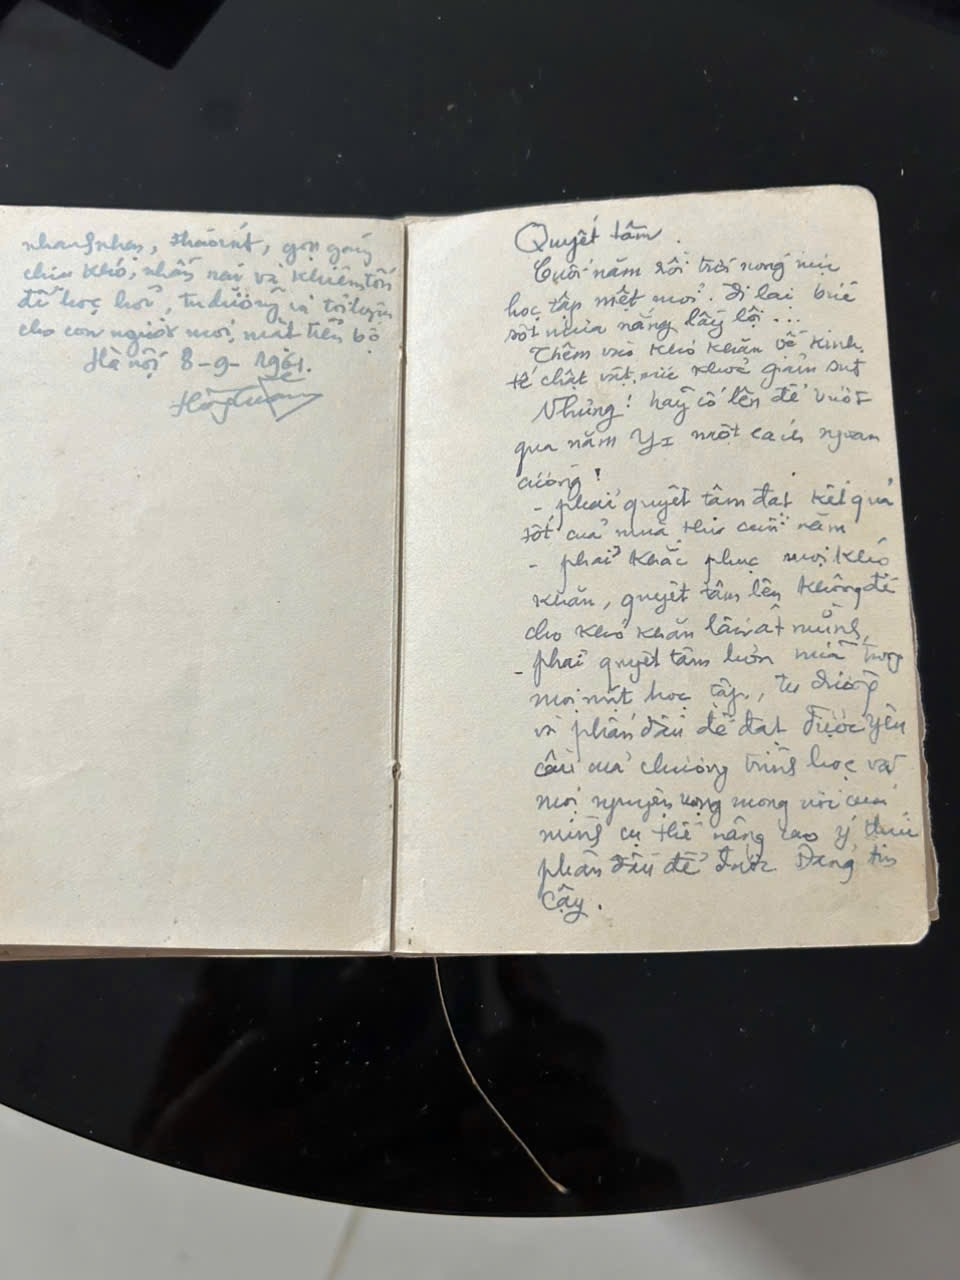 nhanh nhẹn, tháo vát, gọn gàng
chịu khó, nhẫn nại và khiêm tốn
để học hỏi, tu dưỡng và tôi luyện
cho con người mới, mất tiến bộ
Hà nội 8-9-1961.
Quyết tâm.
Cuối năm rồi trời nóng nức
học tập mệt mỏi. Đi lại
sốt mưa nắng lầy lội...
Thêm vào khó khăn về kinh
tế chật vật, sức khoẻ giảm sút
Nhưng! hãy cố lên để vượt
qua năm một cách ngoan
cường!
- phải quyết tâm đạt kết quả
tốt của mùa thi cuối năm
- phải khắc phục mọi khó
khăn, quyết tâm lên không để
cho khó khăn lấn át mình,
- phải quyết tâm hơn nữa trong
mọi mặt học tập, tu dưỡng
và phấn đấu để đạt được yêu
cầu của chương trình học và
mọi nguyện vọng mong ước của
mình cụ thể nâng cao ý thức
phấn đấu để được Đảng tin
cậy.